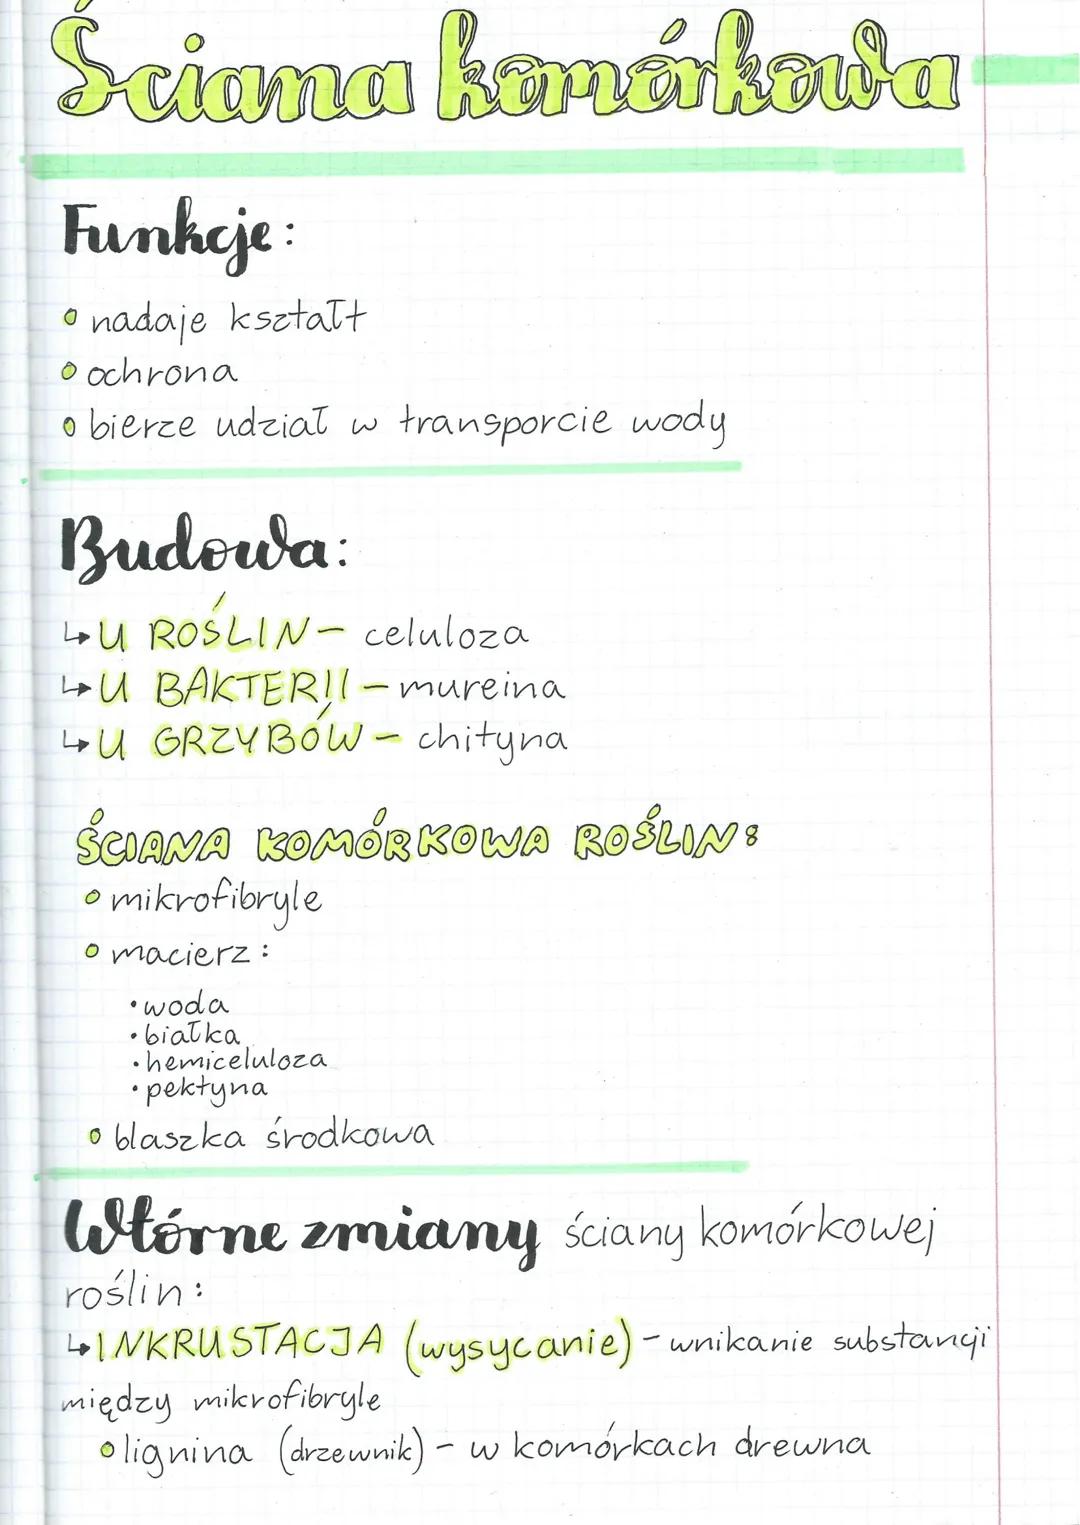 Ściana komórkowa
Funkcje:
nadaje kształt
ochrona
bierze udział w transporcie wody
Budowa:
↳ U ROŚLIN - celuloza
↳ U BAKTERII - mureina
↳ U GRZYBÓW - chityna
ŚCIANA KOMÓRKOWA ROŚLIN:
mikrofibryle
macierz:
• woda
• białka
• hemiceluloza
• pektyna
blaszka środkowa
Wtórne zmiany ściany komórkowej
roślin:
↳ INKRUSTACJA (wysycanie) - wnikanie substancji
między mikrofibryle
lignina (drzewnik) - w komórkach drewna